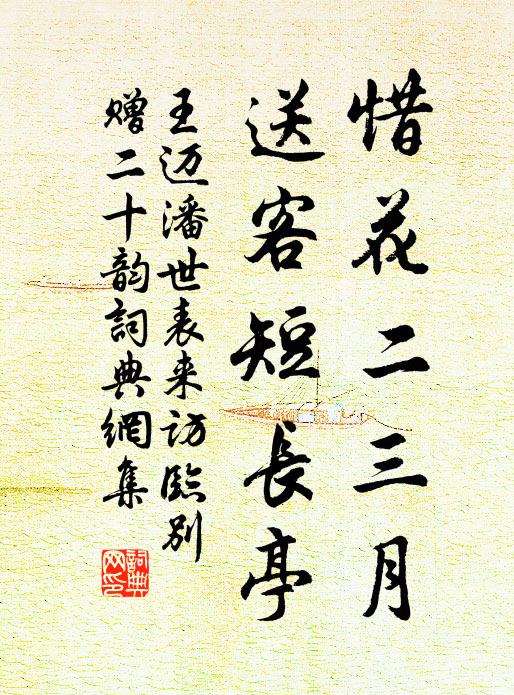 惜花二三月
送客短長亭
王迈潘世表来访临别
赠二十韵詞典網集
詞典网印